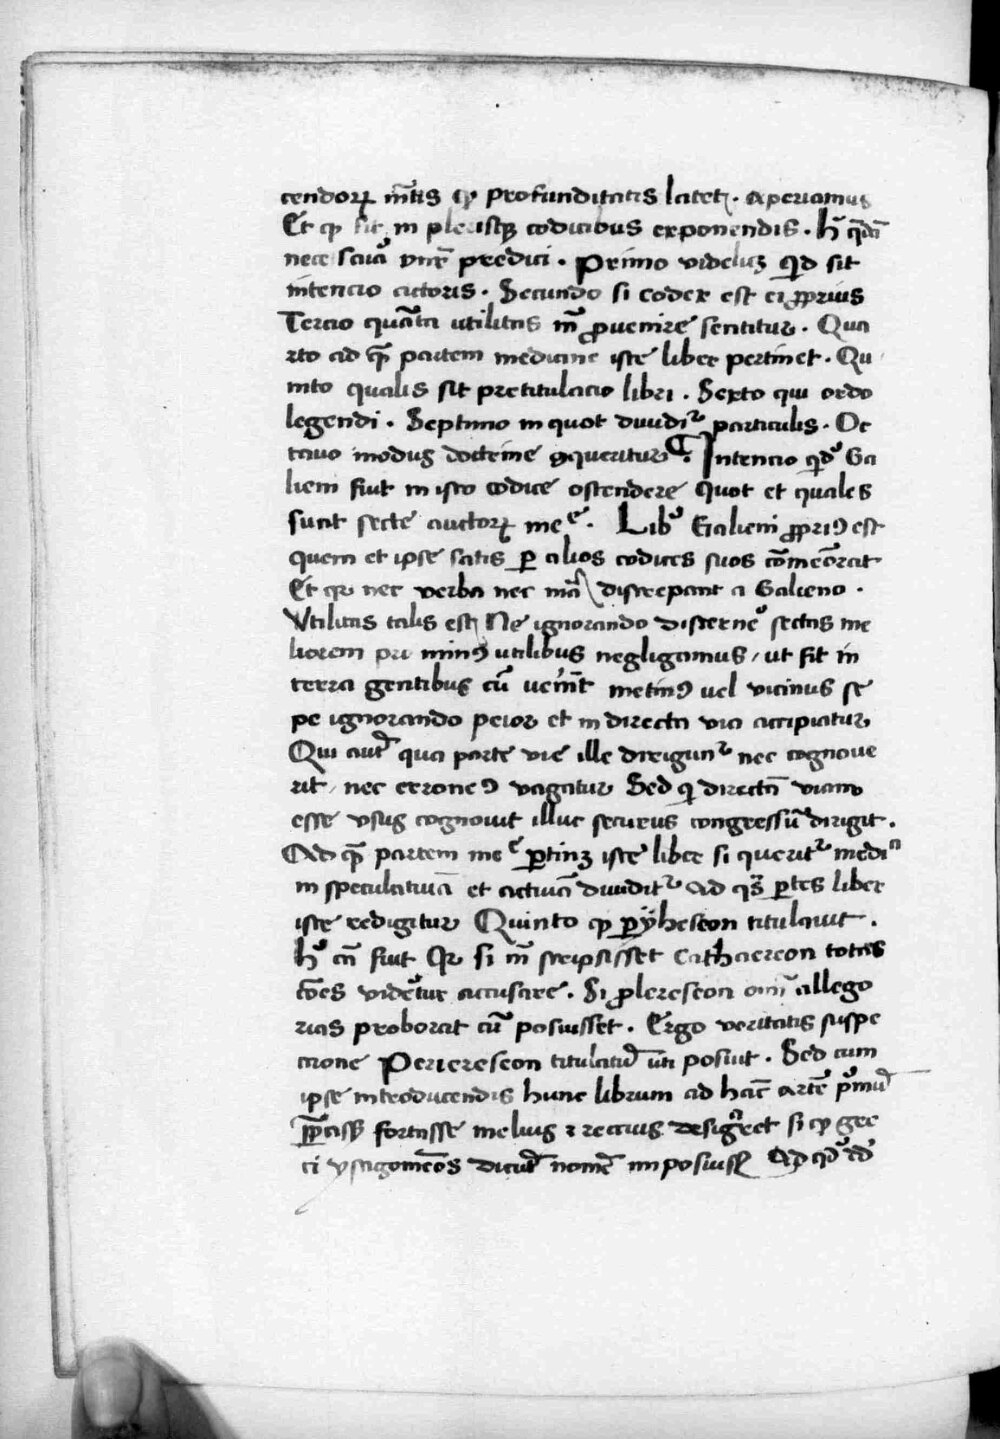 cendoꝝ mẽtis ꝙ profunditatis latetꝫ · aperiamus
Et ꝙ sit in plerisqꝫ codicibus exponendis · h̃ q̃dã
predici · Primo videlicꝫ qͥd sit
intencio auctoris · Secundo si codex est ei ꝓprius
Tercio quãta utilitas in̄ ꝓvenire sentitur · Qua
rto ad q̃ȝ partem medicine iste liber pertinet · Qu
into qualis sit pretitulacio libri · Sexto qui ordo
legendi · Septimo in quot diuidiꝰ particulis · Oc
tauo modus doctrine ꝯqueritur · Intencio qͥdꝰ Ga
lieni fiut in isto codice ostendere quot et quales
sunt secte auctoꝝ meᵉ · Libꝰ Galieni ꝓpriꝰ est
quem et ipse satis ꝑ alios codices suos cõmeõrat
Et qꝛ nec verba nec discrepant a Galieno ·
Vtilitas talis est Ne ignorando discerneꝰ sectas me
liorem pri minꝰ utilibus negligamus / ut sit in
terra gentibus cũ veniũt metinꝰ uel vicinus se
pe ignorando peior et indirecta via accipiatur
Qui autẽ qua parte vie ille dirigunꝰ nec cognoue
rit / nec erroneꝰ vagatur Sed qͥ directã viam
esse vsus cognouit illuc securus congressũ dirigit ·
Ad q̃ȝ partem meᵉ ꝑtinꝫ iste liber si queritꝰ mediᵃ
in speculatiuã et actiuã diuiditꝰ ad q̃s ꝑtes liber
iste redigitur Quinto ꝙ ꝑÿheseon titulauit ·
h̊ cã fiut Qꝛ si in̄ scripsisset Cathaereon totas
õnes videꝰtur accusare · Si ꝓlereseon oim̃ allego
rias proborat cũ posuisset · Ergo veritatis suspe
ctione Periereseon titulatũ uti posuit · Sed cum
ipse introducendis hunc librum ad hãc artẽ pͥmũ
fortasse melius ⁊ rectius desigᷓret si ꝙ gre
ci ysagomẽos dicũt nomẽ imposuisꝫ Ad qͥdꝰ